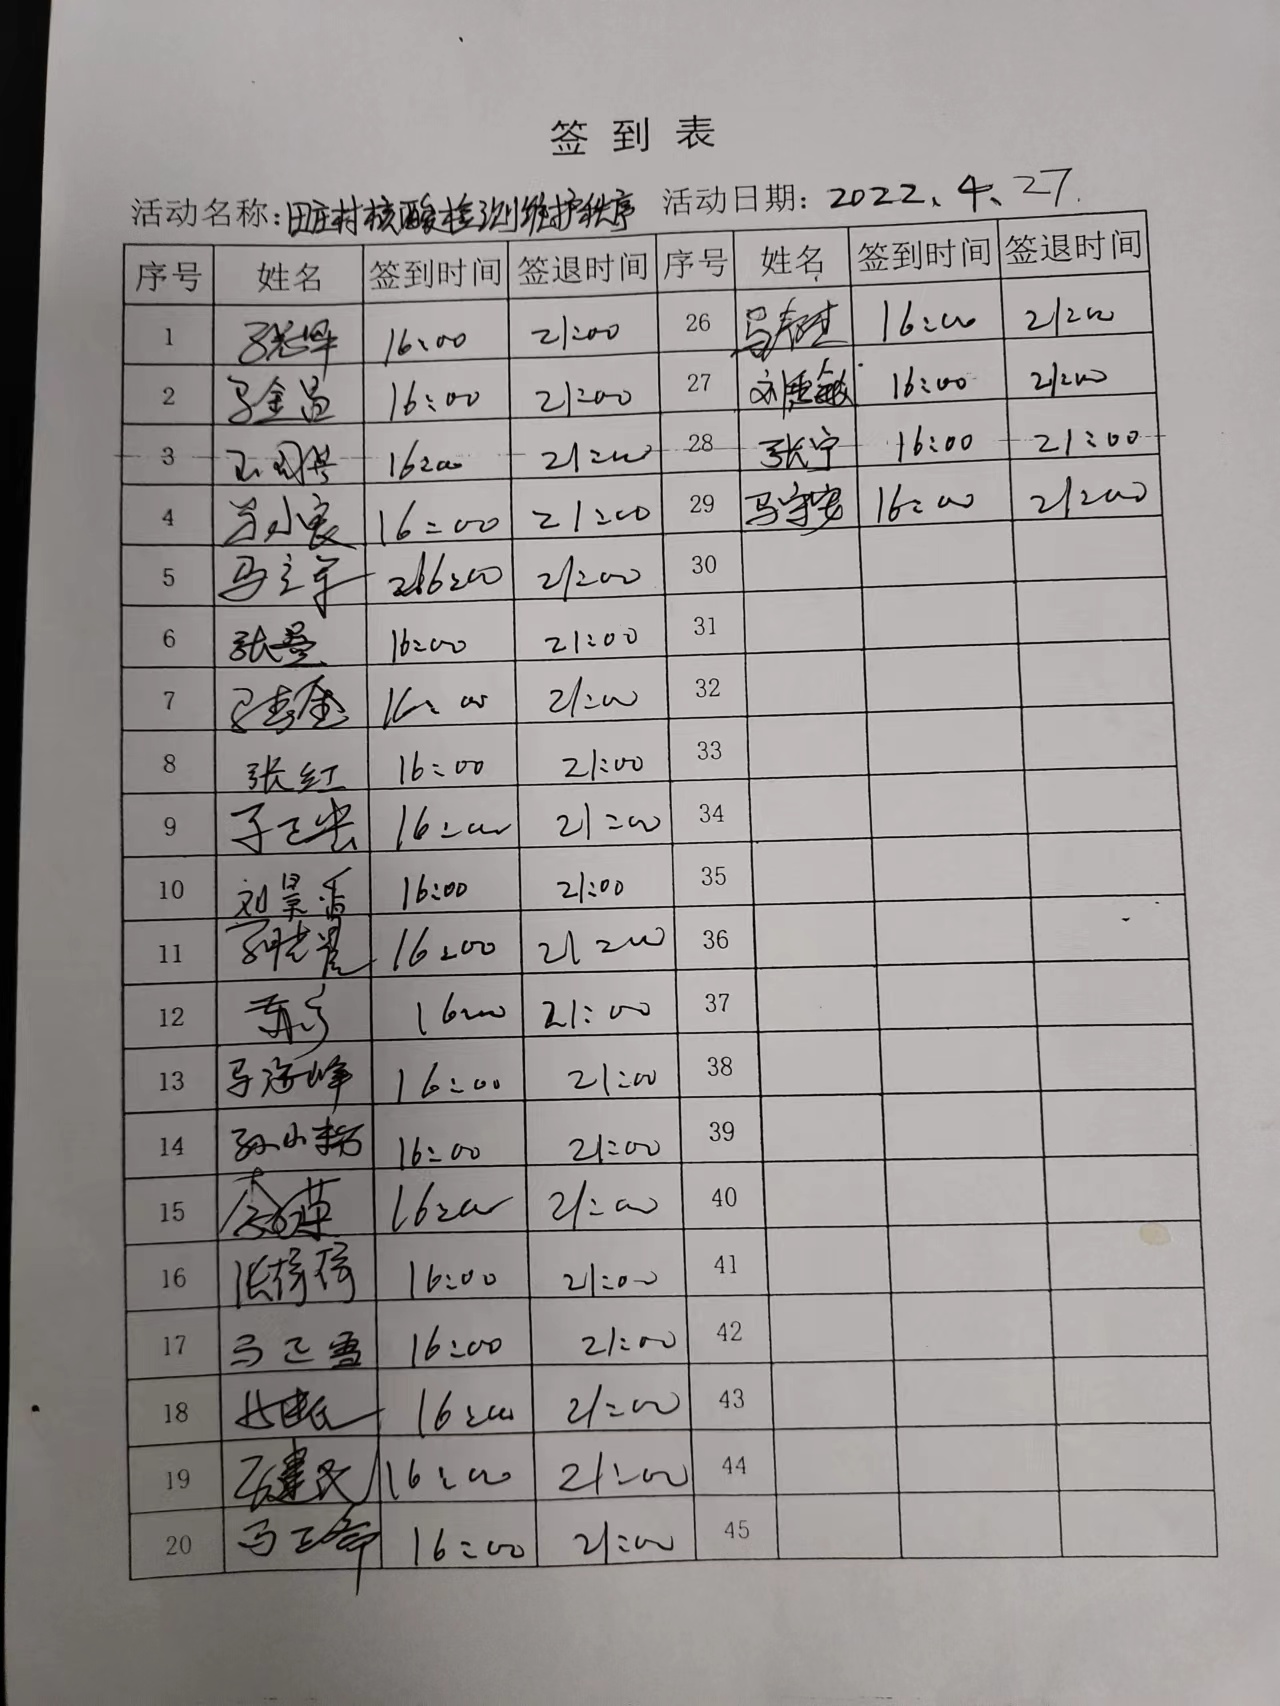 签到表
活动名称:田庄村核酸检测维护秩序 活动日期: 2022.4.27.
序号 姓名 签到时间 签退时间 序号 姓名 签到时间 签退时间
1 16:00 21:00 26 16:00 21:00
2 马金昌 16:00 21:00 27 16:00 21:00
3 16:00 21:00 28 张宁 16:00 21:00
4 16:00 21:00 29 马守安 16:00 21:00
5 马立军 16:00 21:00 30
6 16:00 21:00 31
7 16:00 21:00 32
8 张红 16:00 21:00 33
9 16:00 21:00 34
10 刘景香 16:00 21:00 35
11 16:00 21:00 36
12 16:00 21:00 37
13 马海峰 16:00 21:00 38
14 16:00 21:00 39
15 16:00 21:00 40
16 张倩倩 16:00 21:00 41
17 马正雪 16:00 21:00 42
18 16:00 21:00 43
19 16:00 21:00 44
20 16:00 21:00 45